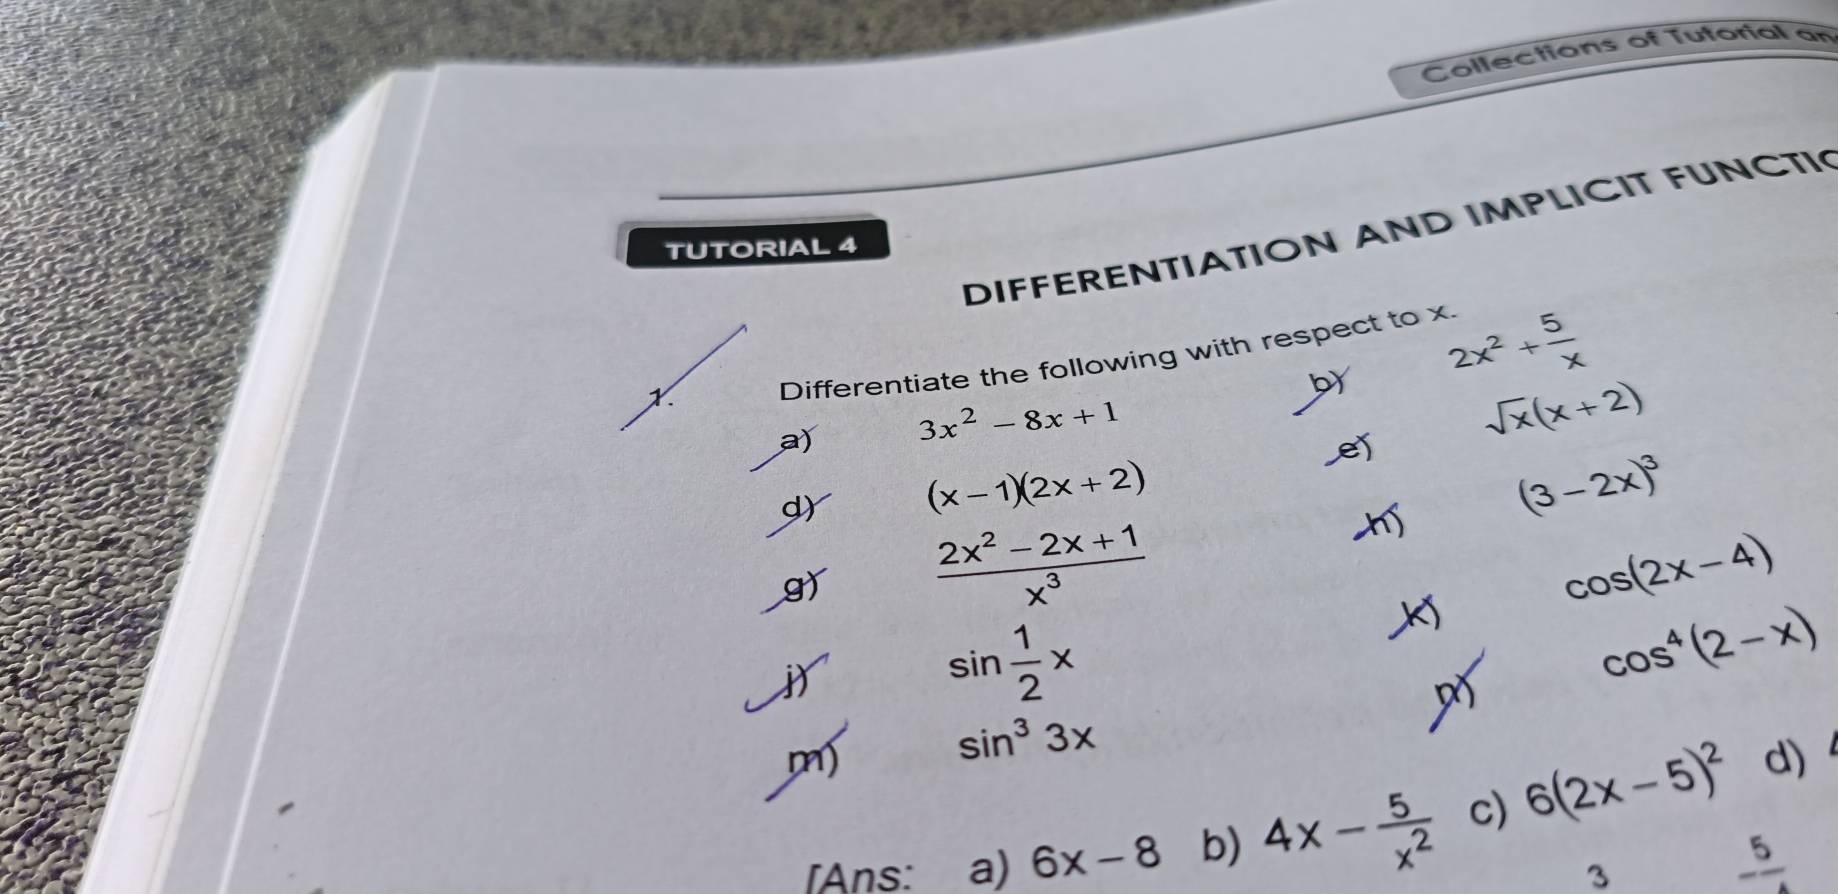 Collections of Tutorial an
TUTORIAL 4
DIFFERENTIATION AND IMPLICIT FUNCTIO
1. Differentiate the following with respect to x.
a) 3x² − 8x + 1 b) 2x² + 5/x
d) (x − 1)(2x + 2) e) √x(x + 2)
g) (2x² − 2x + 1)/x³ h) (3 − 2x)³
j) sin 1/2 x k) cos(2x − 4)
m) sin³ 3x n) cos⁴(2 − x)
[Ans: a) 6x − 8 b) 4x − 5/x² c) 6(2x − 5)² d)
3 − 5